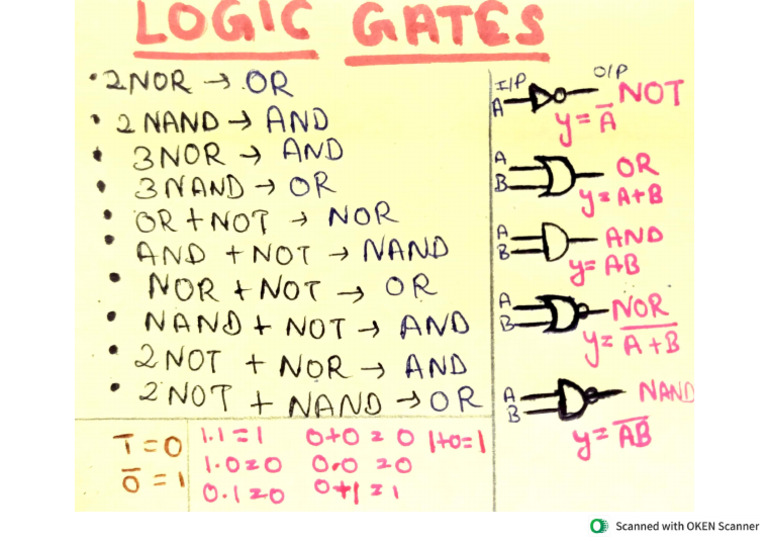 LOGIC GATES
• 2NOR → OR
• 2 NAND → AND
• 3NOR → AND
• 3NAND → OR
• OR + NOT → NOR
• AND + NOT → NAND
• NOR + NOT → OR
• NAND + NOT → AND
• 2NOT + NOR → AND
• 2NOT + NAND → OR
I/P O/P
A NOT
y = A̅
A
B OR
y = A+B
A
B AND
y = AB
A
B NOR
y = A̅ ̅+̅ ̅B̅
A
B NAND
y = A̅B̅
1̅ = 0
0̅ = 1
1.1 = 1 0+0 = 0 1+0=1
1.0=0 0.0 =0
0.1=0 0+1=1
Scanned with OKEN Scanner